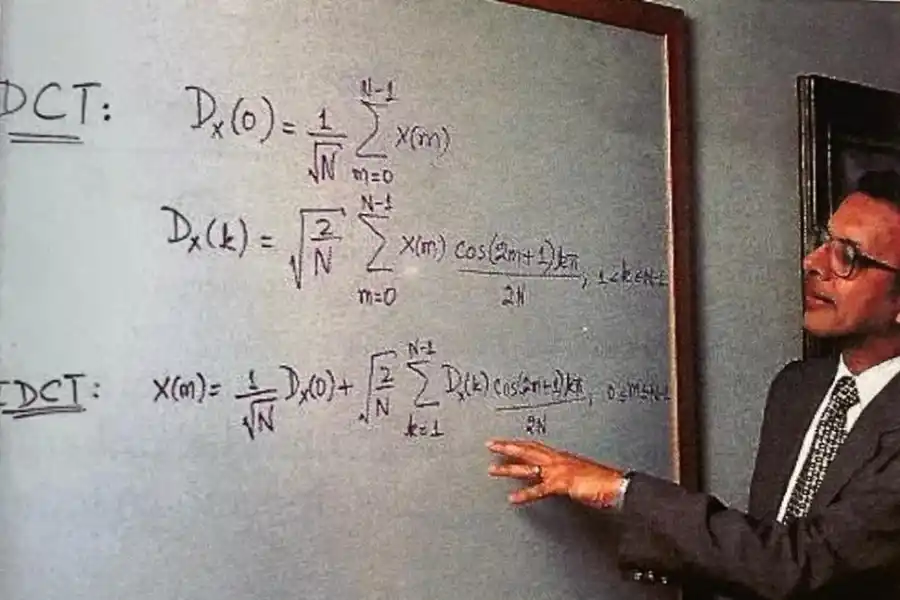 DCT: Dₓ(0) = 1/√N ∑_{m=0}^{N-1} x(m)
Dₓ(k) = √(2/N) ∑_{m=0}^{N-1} x(m) cos(2m+1)kπ/2N,
IDCT: x(m) = 1/√N Dₓ(0) + √(2/N) ∑_{k=1}^{N-1} Dₓ(k) cos(2m+1)kπ/2N, 0≤m≤N-1